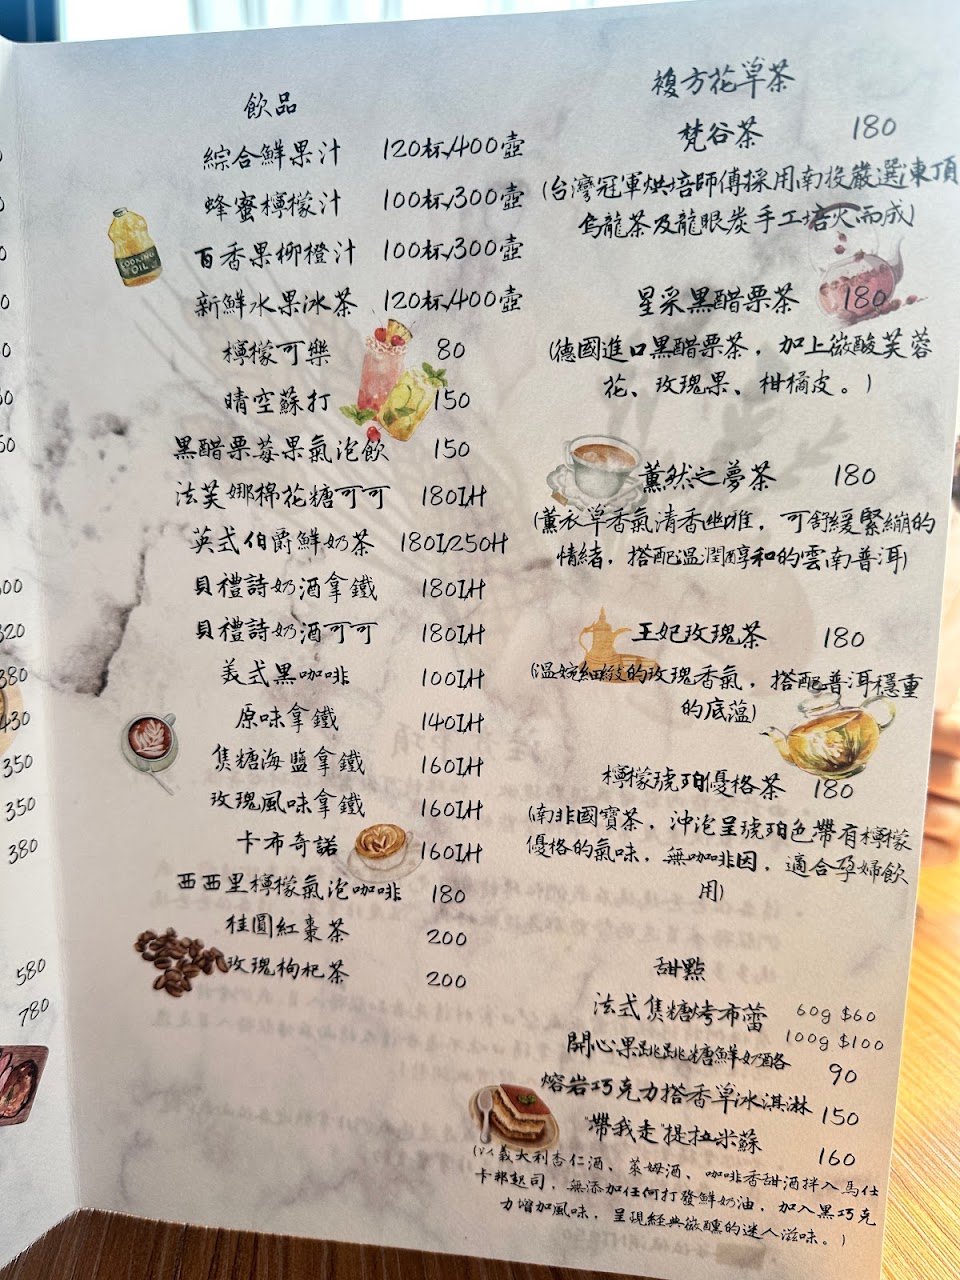 飲品
綜合鮮果汁 120杯/400壺
蜂蜜檸檬汁 100杯/300壺
百香果柳橙汁 100杯/300壺
新鮮水果冰茶 120杯/400壺
檸檬可樂 80
晴空蘇打 150
黑醋栗莓果氣泡飲 150
法芙娜棉花糖可可 180I/H
英式伯爵鮮奶茶 180I/250H
貝禮詩奶酒拿鐵 180I/H
貝禮詩奶酒可可 180I/H
義式黑咖啡 100I/H
原味拿鐵 140I/H
焦糖海鹽拿鐵 160I/H
玫瑰風味拿鐵 160I/H
卡布奇諾 160I/H
西西里檸檬氣泡咖啡 180
桂圓紅棗茶 200
玫瑰枸杞茶 200
COOKING
OIL
複方花草茶
梵谷茶 180
(台灣冠軍烘培師傅採用南投嚴選凍頂
烏龍茶及龍眼炭手工培火而成)
星采黑醋栗茶 180
(德國進口黑醋栗茶，加上微酸芙蓉
花、玫瑰果、柑橘皮。)
薰然之夢茶 180
(薰衣草香氣清香幽雅，可舒緩緊繃的
情緒，搭配溫潤醇和的雲南普洱)
王妃玫瑰茶 180
(溫婉細緻的玫瑰香氣，搭配普洱穩重
的底蘊)
檸檬琥珀優格茶 180
(南非國寶茶，沖泡呈琥珀色帶有檸檬
優格的氣味，無咖啡因，適合孕婦飲
用)
甜點
法式焦糖烤布蕾 60g $60
100g $100
開心果跳跳糖鮮奶酪 90
熔岩巧克力搭香草冰淇淋 150
"帶我走"提拉米蘇 160
(以義大利杏仁酒、萊姆酒、咖啡香甜酒拌入馬仕
卡邦起司，無添加任何打發鮮奶油，加入黑巧克
力增加風味，呈現經典微醺的迷人滋味。)
320
380
430
350
350
380
580
780